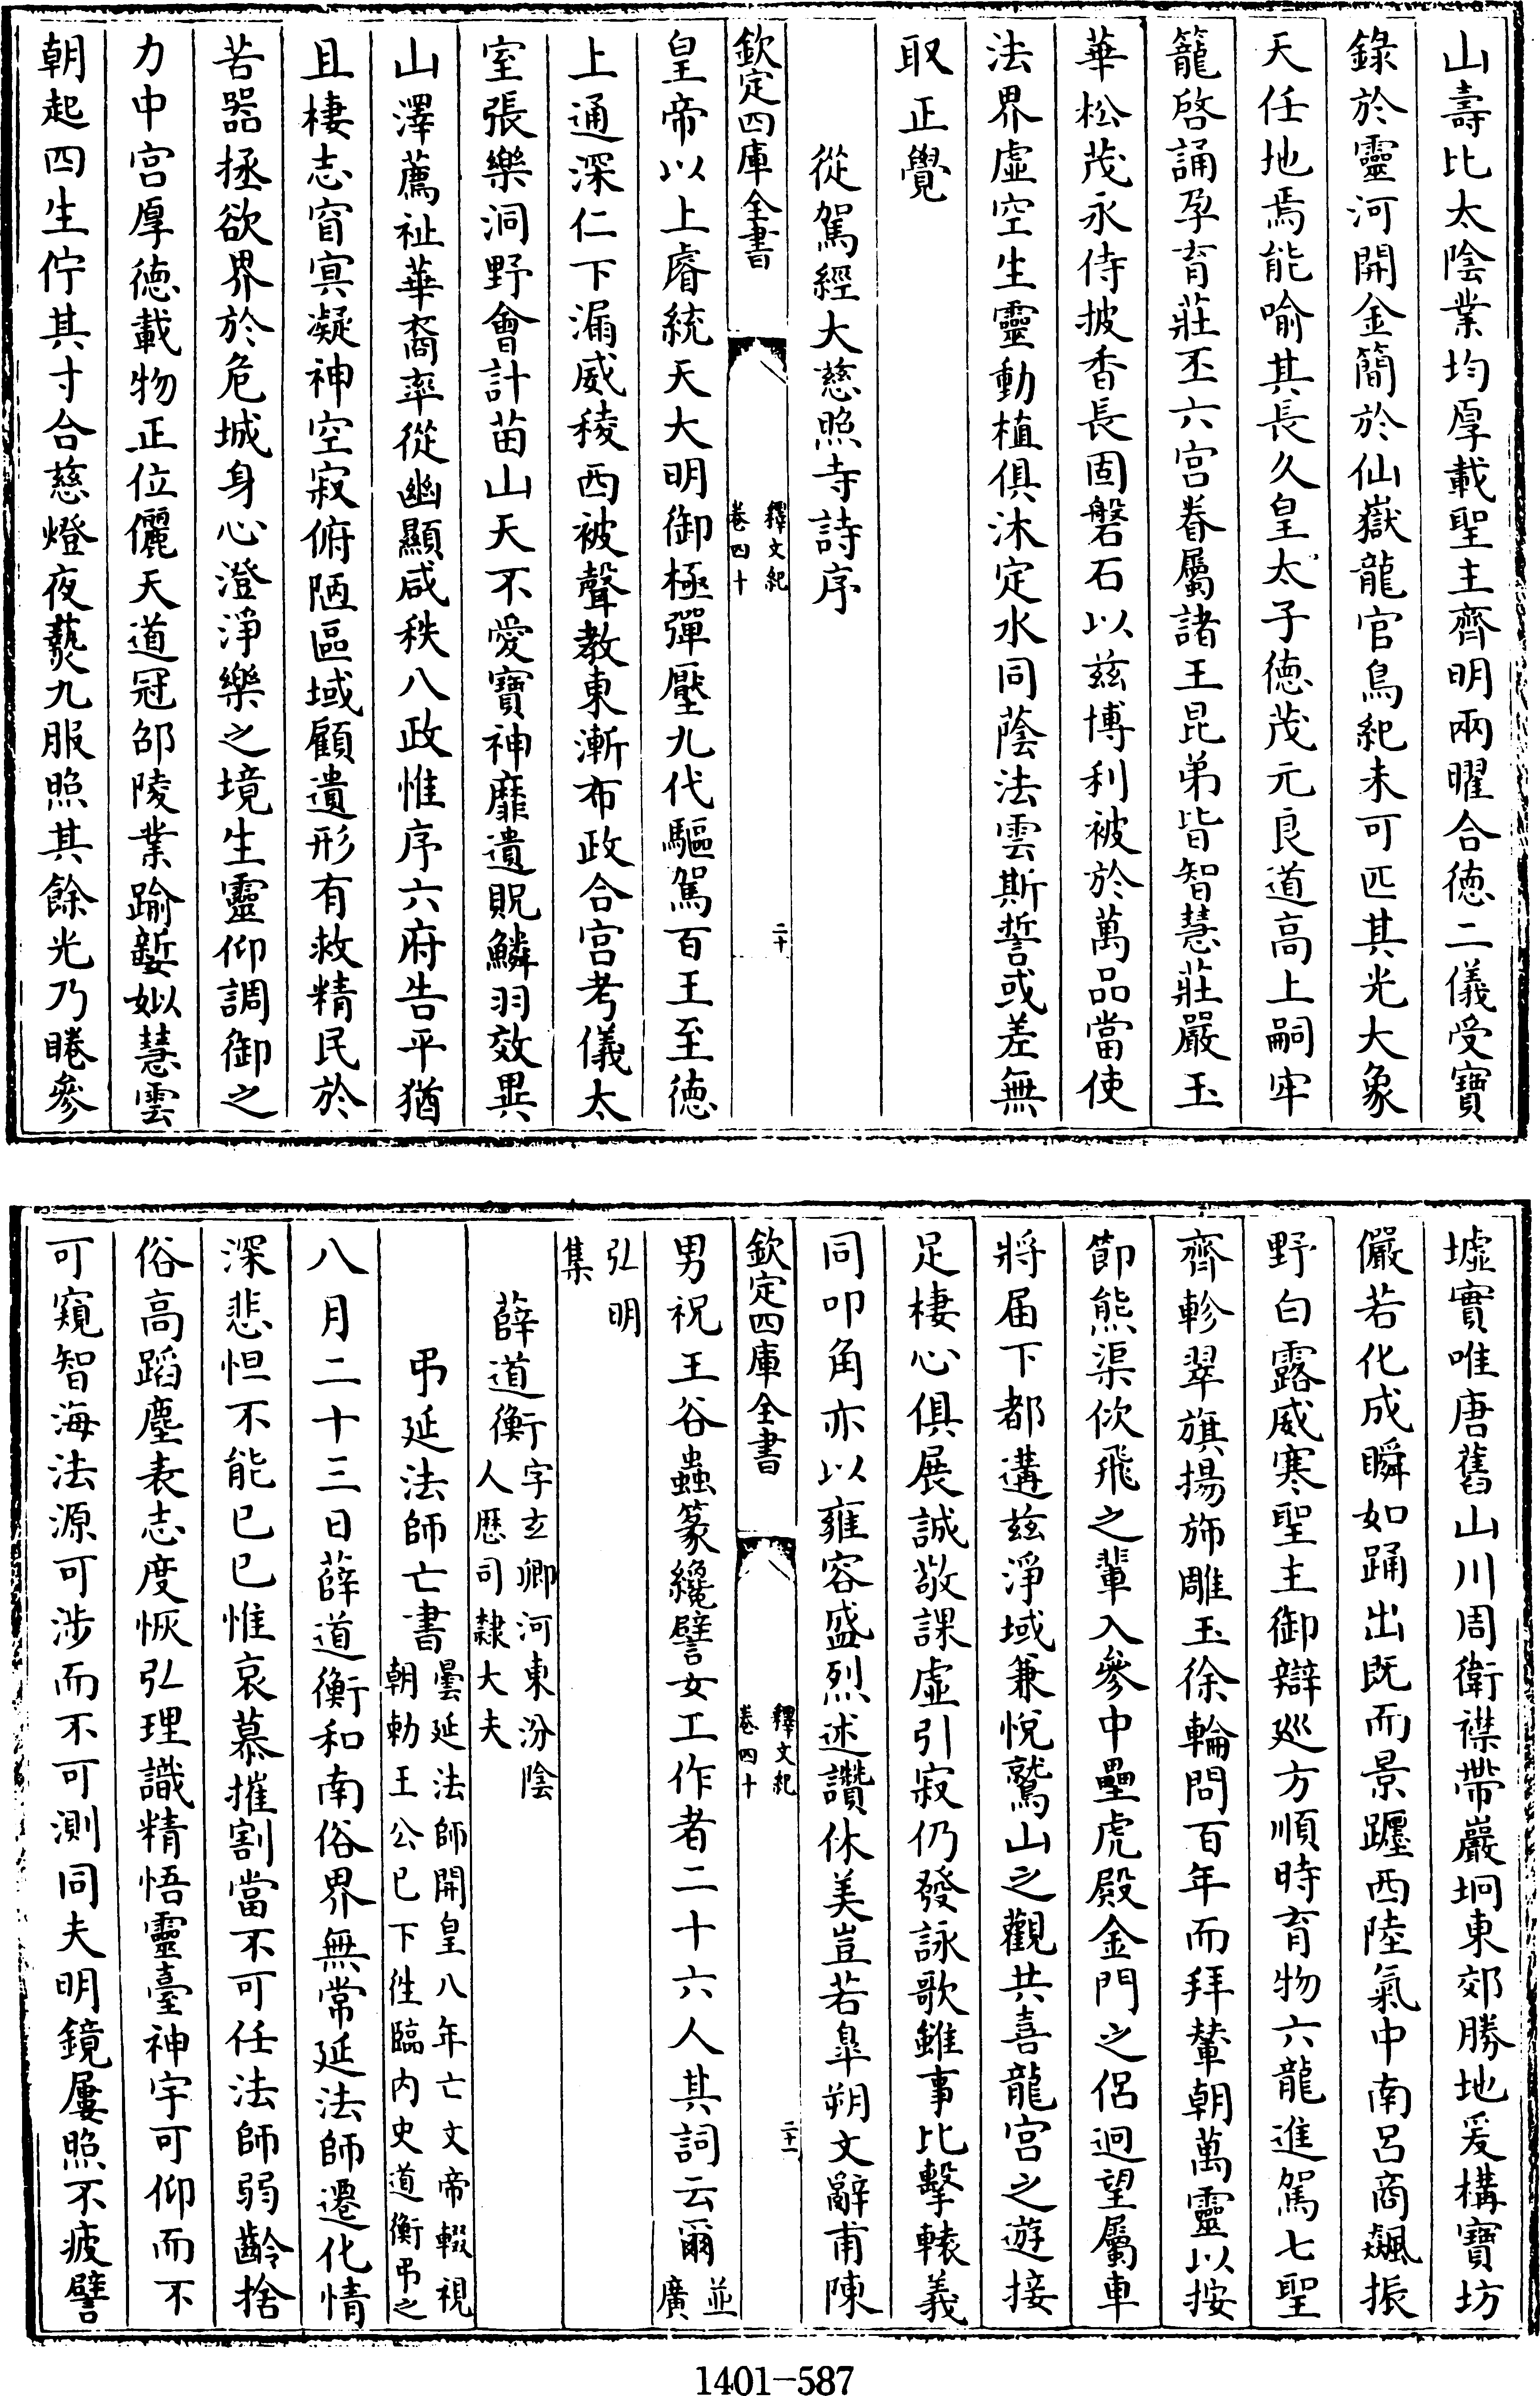 山壽比太陰業均厚載聖主齊明兩曜合德二儀受寶
錄於靈河開金簡於仙嶽龍官鳥紀未可匹其光大象
天任地焉能喻其長久皇太子德茂元良道高上嗣牢
籠啓誦孕育莊丕六宮眷屬諸王昆弟皆智慧莊嚴玉
華松茂永侍披香長固磐石以兹博利被於萬品當使
法界虛空生靈動植俱沐定水同蔭法雲斯誓或差無
取正覺
從駕經大慈照寺詩序
欽定四庫全書
釋文紀
卷四十
二十
皇帝以上睿統天大明御極彈壓九代驅駕百王至德
上通深仁下漏威稜西被聲教東漸布政合宮考儀太
室張樂洞野會計苗山天不愛寶神靡遺貺鱗羽效異
山澤薦祉華裔率從幽顯咸秩八政惟序六府告平猶
且棲志窅冥凝神空寂俯陋區域顧遺形有救精民於
苦器拯欲界於危城身心澄淨樂之境生靈仰調御之
力中宮厚德載物正位儷天道冠邰陵業踰嫛姒慧雲
朝起四生佇其寸合慈燈夜爇九服照其餘光乃睠參
墟實唯唐舊山川周衛襟帶巖坰東郊勝地爰構寶坊
儼若化成瞬如踊出既而景躔西陸氣中南呂商飆振
野白露威寒聖主御辯巡方順時育物六龍進駕七聖
齊軫翠旗揚斾雕玉徐輪問百年而拜輦朝萬靈以按
節熊渠佽飛之輩入參中壘虎殿金門之侶迴望屬車
將届下都遘兹淨域兼悅鷲山之觀共喜龍宮之遊接
足棲心俱展誠敬課虛引寂仍發詠歌雖事比擊轅義
同叩角亦以雍容盛烈述讚休美豈若臯朔文辭甫陳
欽定四庫全書
釋文紀
卷四十
二十一
男祝王谷蟲篆纔譬女工作者二十六人其詞云爾並廣
弘明
集
薛道衡字玄卿河東汾陰
人歷司隸大夫
弔延法師亡書曇延法師開皇八年亡文帝輟視
朝勅王公已下往臨内史道衡弔之
八月二十三日薛道衡和南俗界無常延法師遷化情
深悲怛不能已已惟哀慕摧割當不可任法師弱齡捨
俗高蹈塵表志度恢弘理識精悟靈臺神宇可仰而不
可窺智海法源可涉而不可測同夫明鏡屢照不疲譬
1401-587